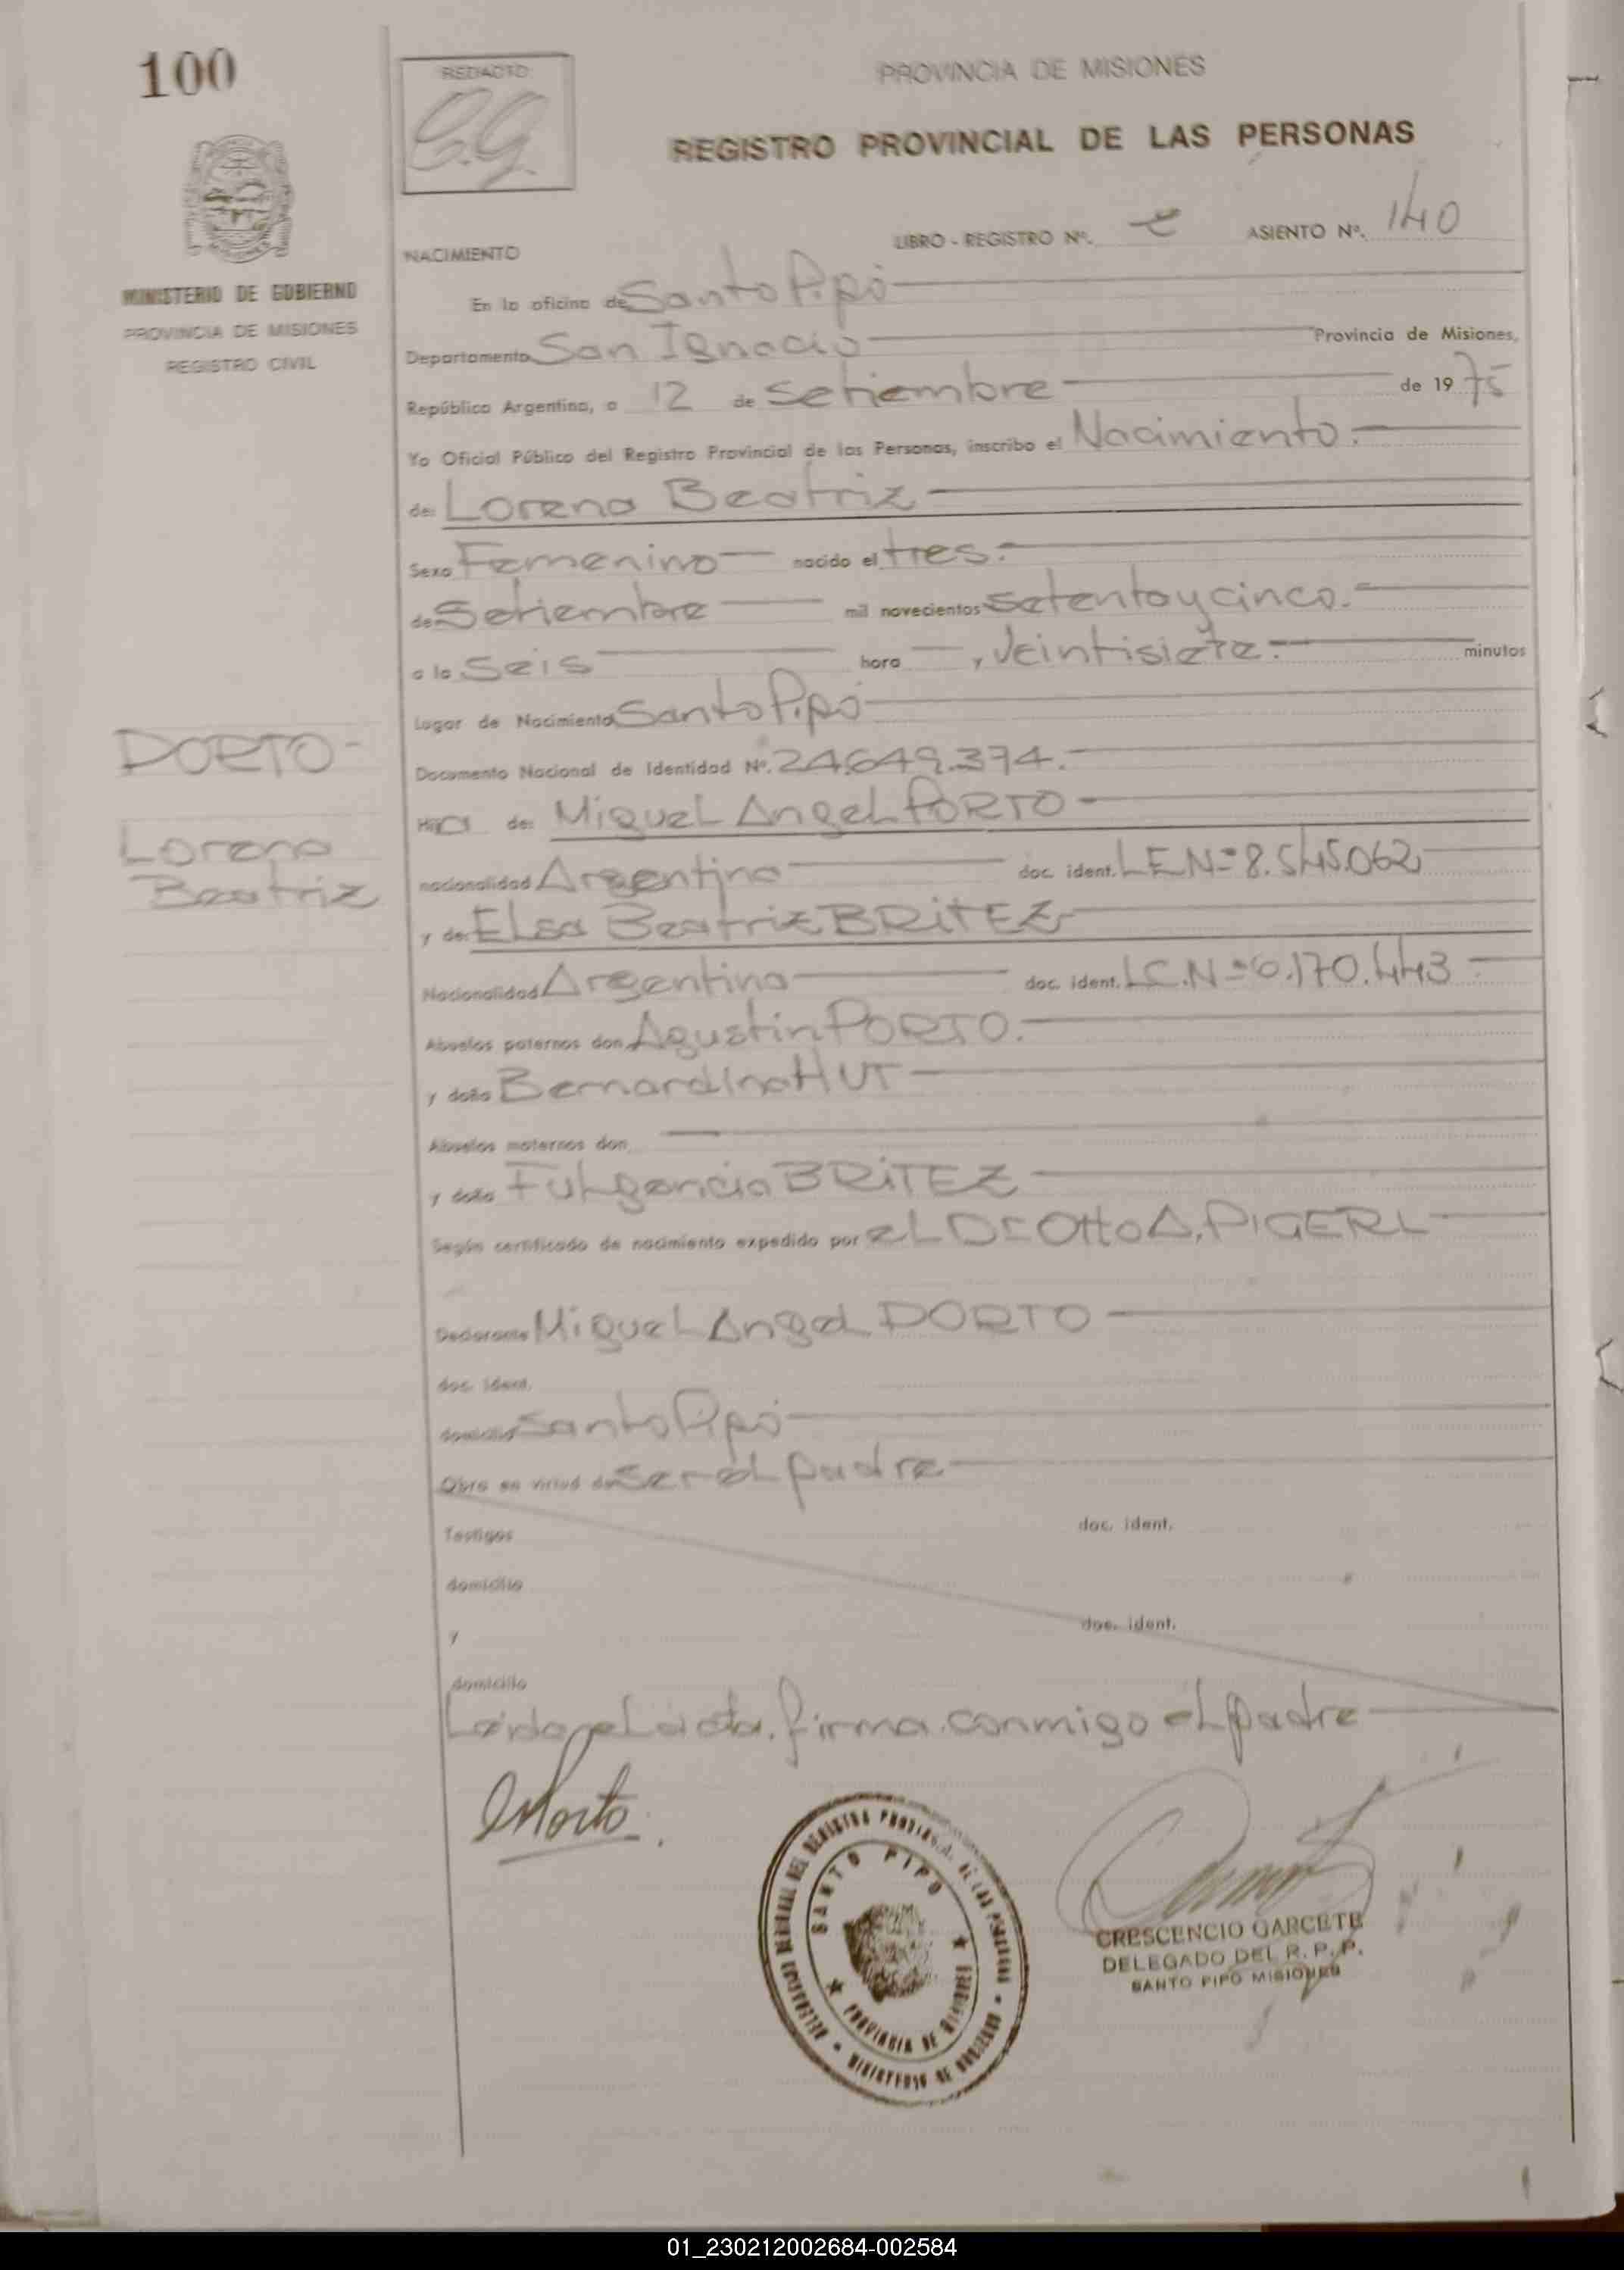 100
REDACTO:
C.G.
PROVINCIA DE MISIONES
REGISTRO PROVINCIAL DE LAS PERSONAS
MINISTERIO DE GOBIERNO
PROVINCIA DE MISIONES
REGISTRO CIVIL
NACIMIENTO
LIBRO - REGISTRO Nº. ASIENTO Nº. 140
En la oficina de Santo Pipó
Departamento San Ignacio Provincia de Misiones,
República Argentina, a 12 de Setiembre de 1975
Yo Oficial Público del Registro Provincial de las Personas, inscribo el Nacimiento.
de: Lorena Beatriz
Sexo Femenino nacido el tres.
de Setiembre mil novecientos setenta y cinco.
a la Seis hora y Veintisiete. minutos
Lugar de Nacimiento Santo Pipó
Documento Nacional de Identidad Nº. 24.649.374.
Hija de: Miguel Angel PORTO
nacionalidad Argentina doc. ident. L.E.Nº 8.545.062
y de: Elsa Beatriz BRiTEZ
Nacionalidad Argentina doc. ident. L.C.Nº 6.170.443
Abuelos paternos don Agustin PORTO.
y doña Bernardina HUT
Abuelos maternos don
y doña Fulgencia BRiTEZ
Según certificado de nacimiento expedido por el Dr Otto A. PIGERL
Declarante Miguel Angel PORTO
doc. ident.
domicilio Santo Pipó
Obra en virtud de Ser el padre
Testigos doc. ident.
domicilio
y doc. ident.
domicilio
Leída el acta, firma conmigo el padre
PORTO
Lorena
Beatriz
DELEGACION DEL REGISTRO PROVINCIAL DE LAS PERSONAS
MINISTERIO DE GOBIERNO
SANTO PIPO
PROVINCIA DE MISIONES
CRESCENCIO GARCETE
DELEGADO DEL R. P. P.
SANTO PIPO MISIONES
01_230212002684-002584